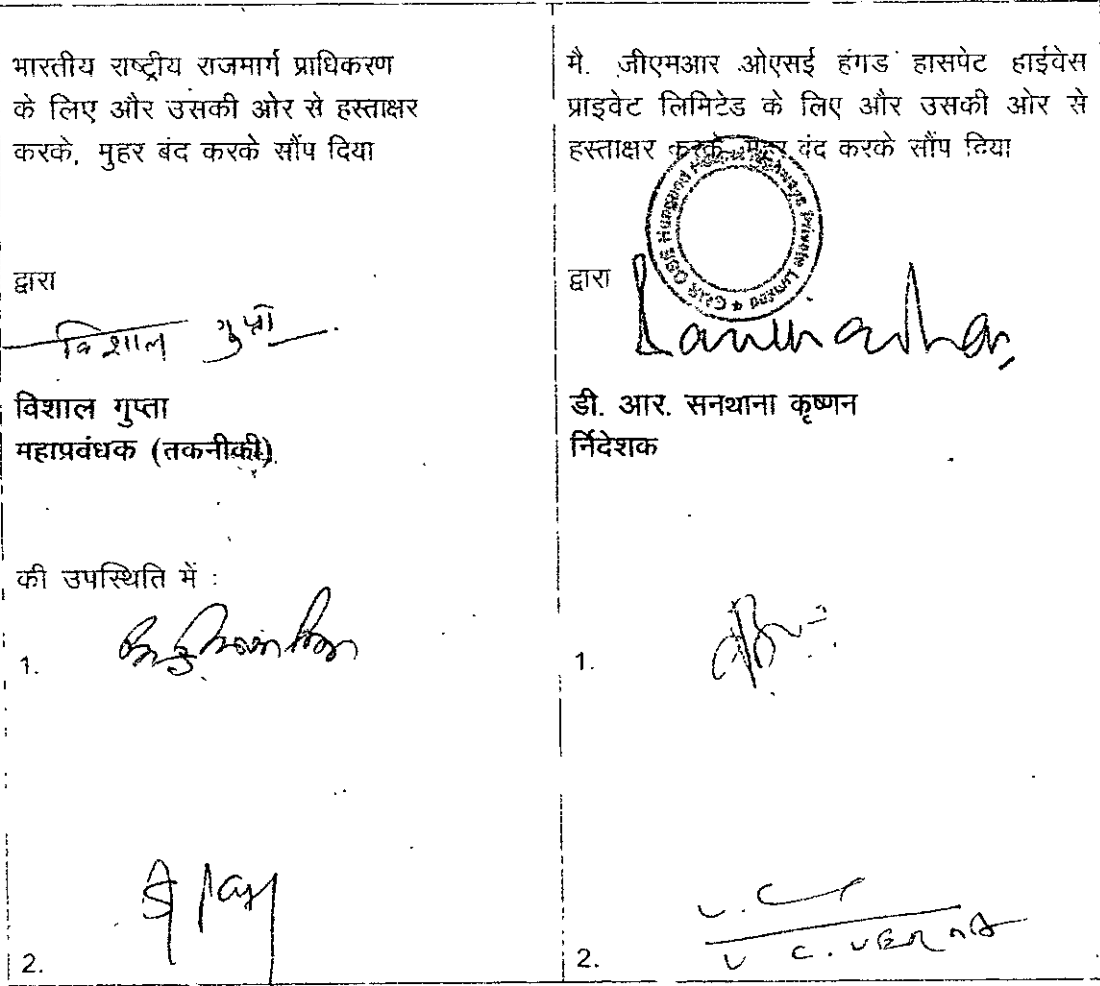 भारतीय राष्ट्रीय राजमार्ग प्राधिकरण
के लिए और उसकी ओर से हस्ताक्षर
करके, मुहर बंद करके सौंप दिया
द्वारा
विशाल गुप्ता
विशाल गुप्ता
महाप्रवंधक (तकनीकी)
की उपस्थिति में :
1.
2.
मै. जीएमआर ओएसई हंगड हासपेट हाईवेस
प्राइवेट लिमिटेड के लिए और उसकी ओर से
हस्ताक्षर करके, मुहर वंद करके सौंप दिया
Highways Private Limited
द्वारा
डी. आर. सनथाना कृष्णन
र्निदेशक
1.
2.
V. C. VERMA